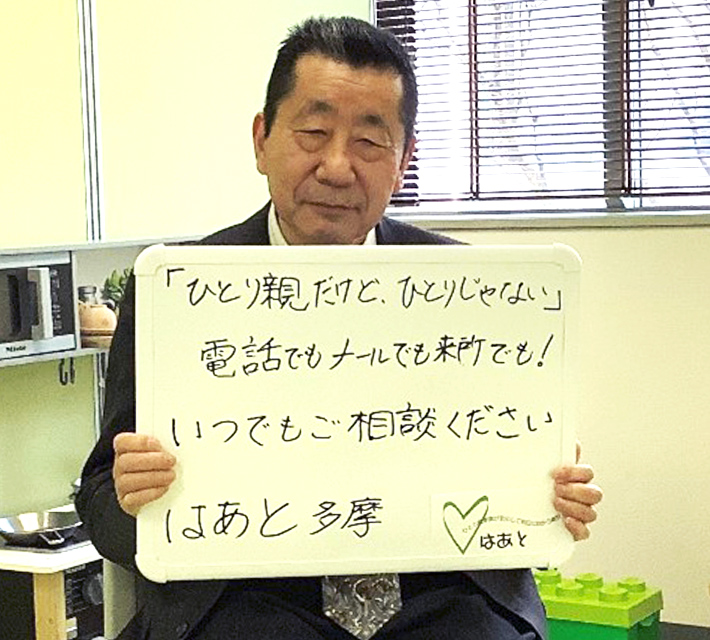 「ひとり親だけど、ひとりじゃない」
電話でもメールでも来所でも!
いつでもご相談ください
はあと 多摩
はあと
Miele